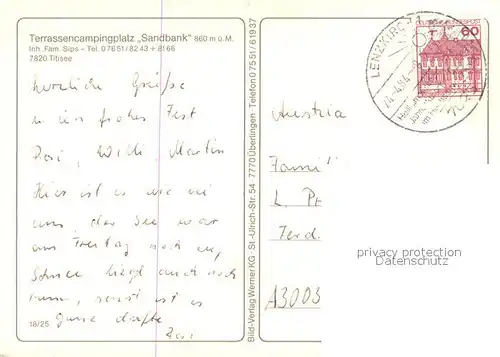 Terrassencampingplatz „Sandbank" 860 m ü. M.
Inh. Fam. Sips - Tel. 0 76 51 / 82 43 + 81 66
7820 Titisee
herzliche Grüße
u. ein frohes Fest
Dori, Willi, Martin
Hier ist es wie
uns, der See war
am Freitag noch zu,
Schnee liegt auch noch
rum, sonst ist es
ganz
18/25
Bild-Verlag Werner KG · St.-Ulrich-Str. 54 · 7770 Überlingen · Telefon 0 75 51 / 6 19 37
LENZKIRCH 1
60
Austria
Famil
L. Pr
Ferd.
A3003
privacy protection
Datenschutz